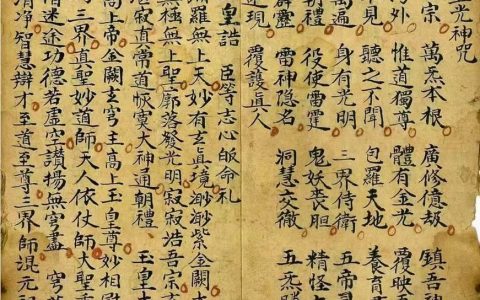 光神咒
宗 萬炁本根 廣修億劫 鎮吾
外 惟道獨尊 體有金光 覆映
不見 聽之不聞 包羅天地 養育
萬遍 身有光明 三界侍衛 五帝
朝禮 役使雷霆 鬼妖喪胆 精怪
霹靈 雷神隐名 洞慧交徹 五炁
近現 覆護真人
皇誥 臣等志心皈命礼
羅無上天妙有玄真境渺渺紫金闕
無極無上聖廓落發光明寂寂浩吾宗
寂真常道恢寞大神通朝禮 玉皇大
高上帝金闕玄穹主高上玉皇尊妙相
三界真聖妙道師天人依仗師大聖
迷途功德若虛空讃揚無穷盡 穹
清净智慧辯才至道至尊三界師混元